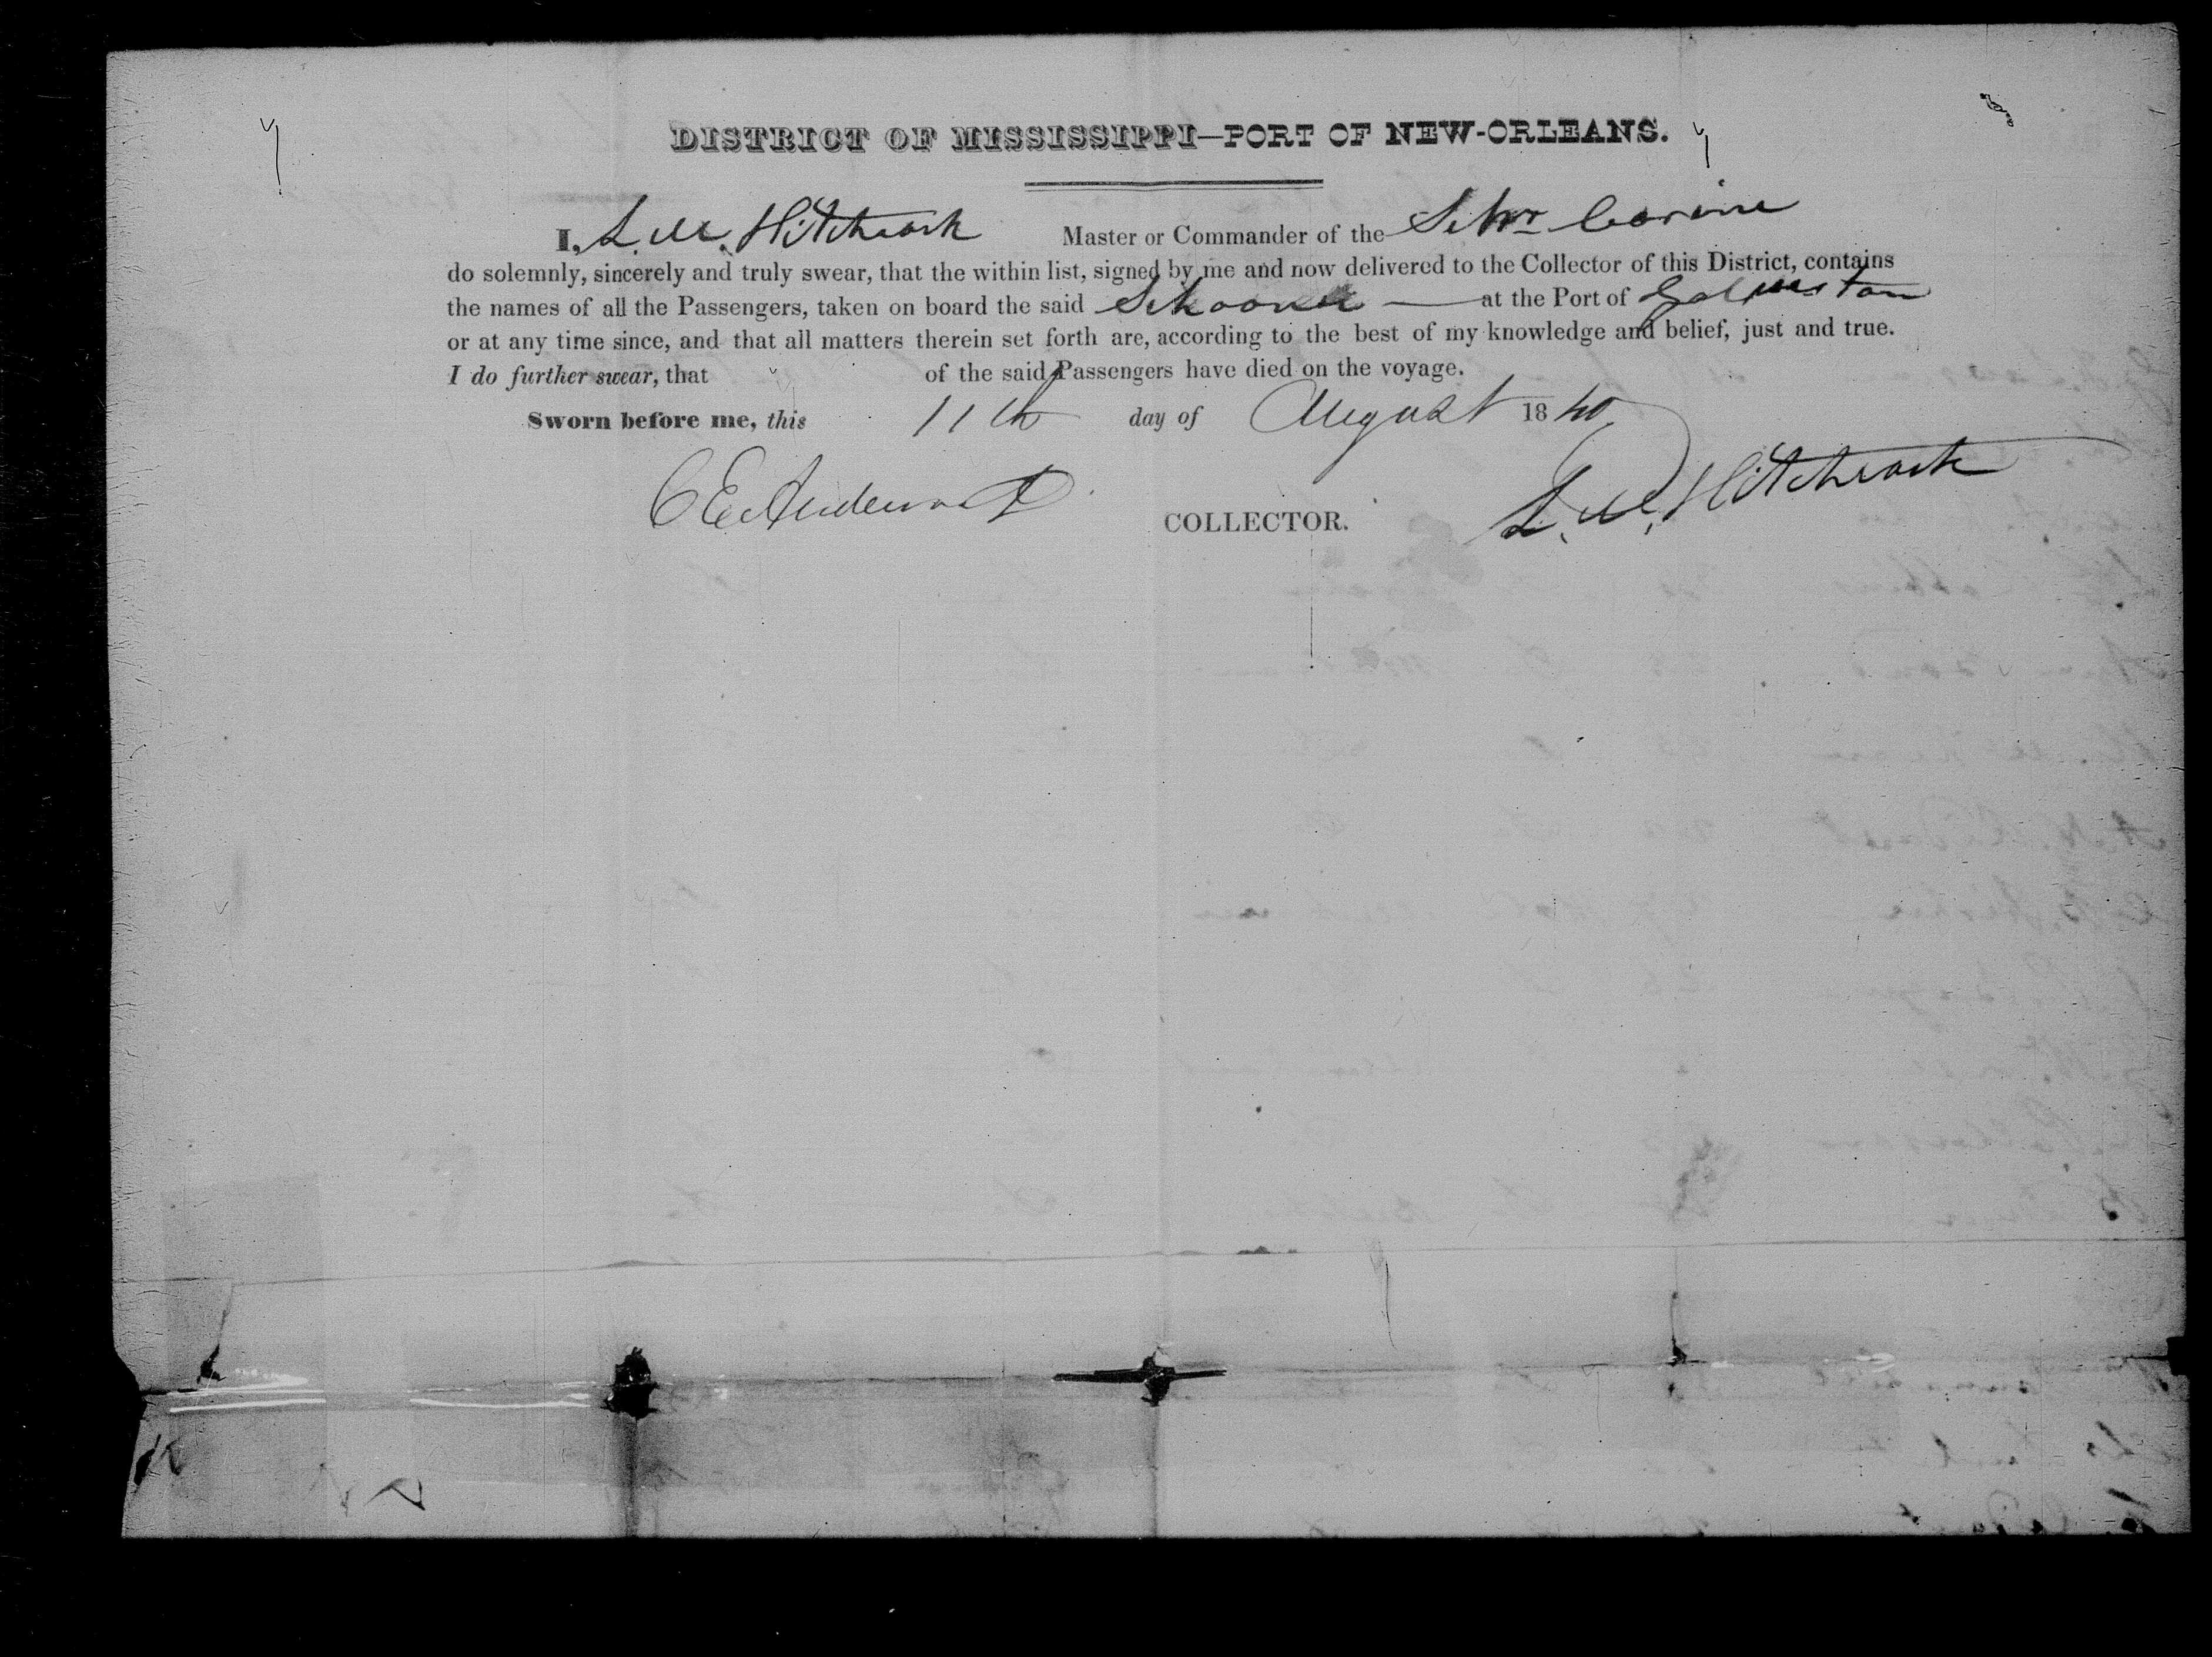 DISTRICT OF MISSISSIPPI—PORT OF NEW-ORLEANS.
I, L. M. Hitchcock Master or Commander of the Schr Corine
do solemnly, sincerely and truly swear, that the within list, signed by me and now delivered to the Collector of this District, contains
the names of all the Passengers, taken on board the said Schooner — at the Port of Galveston
or at any time since, and that all matters therein set forth are, according to the best of my knowledge and belief, just and true.
I do further swear, that of the said Passengers have died on the voyage.
Sworn before me, this 11th day of August 1840
COLLECTOR. L. M. Hitchcock